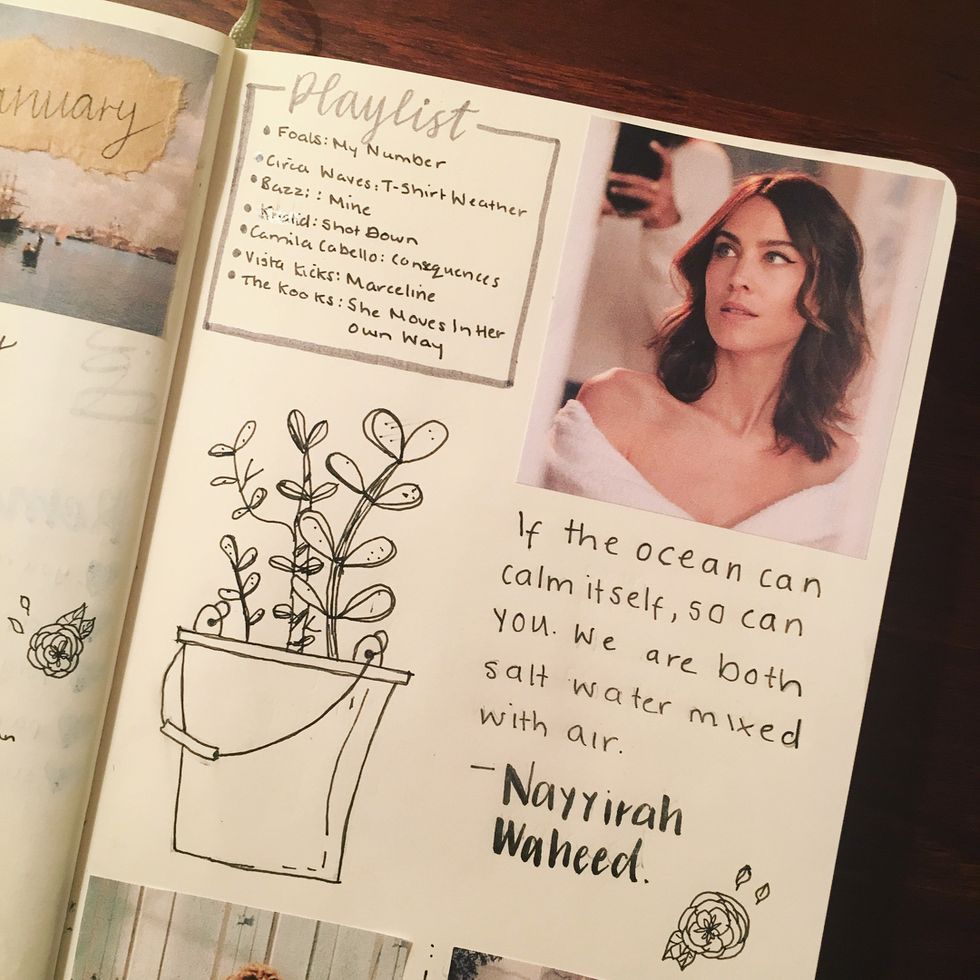 anuary
Playlist
• Foals: My Number
• Circa Waves: T-Shirt Weather
• Bazzi: : Mine
• Khalid: Shot Down
• Camila Cabello: Consequences
• Vista Kicks: Marceline
• The Kooks: She Moves In Her
own Way
If the ocean can
calm itself, so can
you. We are both
salt water mixed
with air.
– Nayyirah
Waheed.